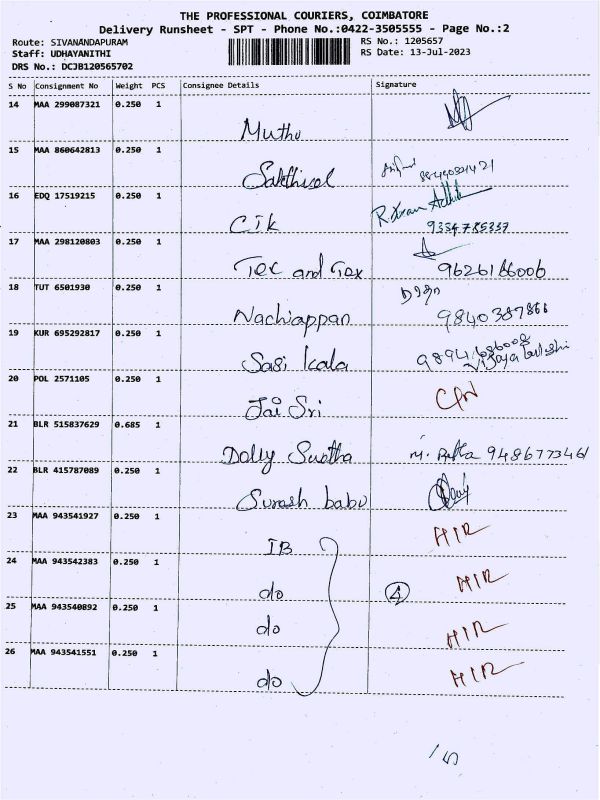 THE PROFESSIONAL COURIERS, COIMBATORE
Delivery Runsheet - SPT - Phone No.:0422-3505555 - Page No.:2
Route: SIVANANDAPURAM RS No.: 1205657
Staff: UDHAYANITHI RS Date: 13-Jul-2023
DRS No.: DCJB120565702
S No Consignment No Weight PCS Consignee Details Signature
14 MAA 299087321 0.250 1
Muthu
15 MAA 860642813 0.250 1
Sakthivel
16 EDQ 17519215 0.250 1
CIK 9334785337
17 MAA 298120803 0.250 1
Tex and Tex 9626166006
18 TUT 6501930 0.250 1
Nachiappan 9840387866
19 KUR 695292817 0.250 1
Sasi kala
20 POL 2571105 0.250 1
Jai Sri
21 BLR 515837629 0.685 1
Dolly Sustha 9486773461
22 BLR 415787089 0.250 1
Suresh babu
23 MAA 943541927 0.250 1
IB HIR
24 MAA 943542383 0.250 1
do 4 HIR
25 MAA 943540892 0.250 1
do HIR
26 MAA 943541551 0.250 1
do HIR